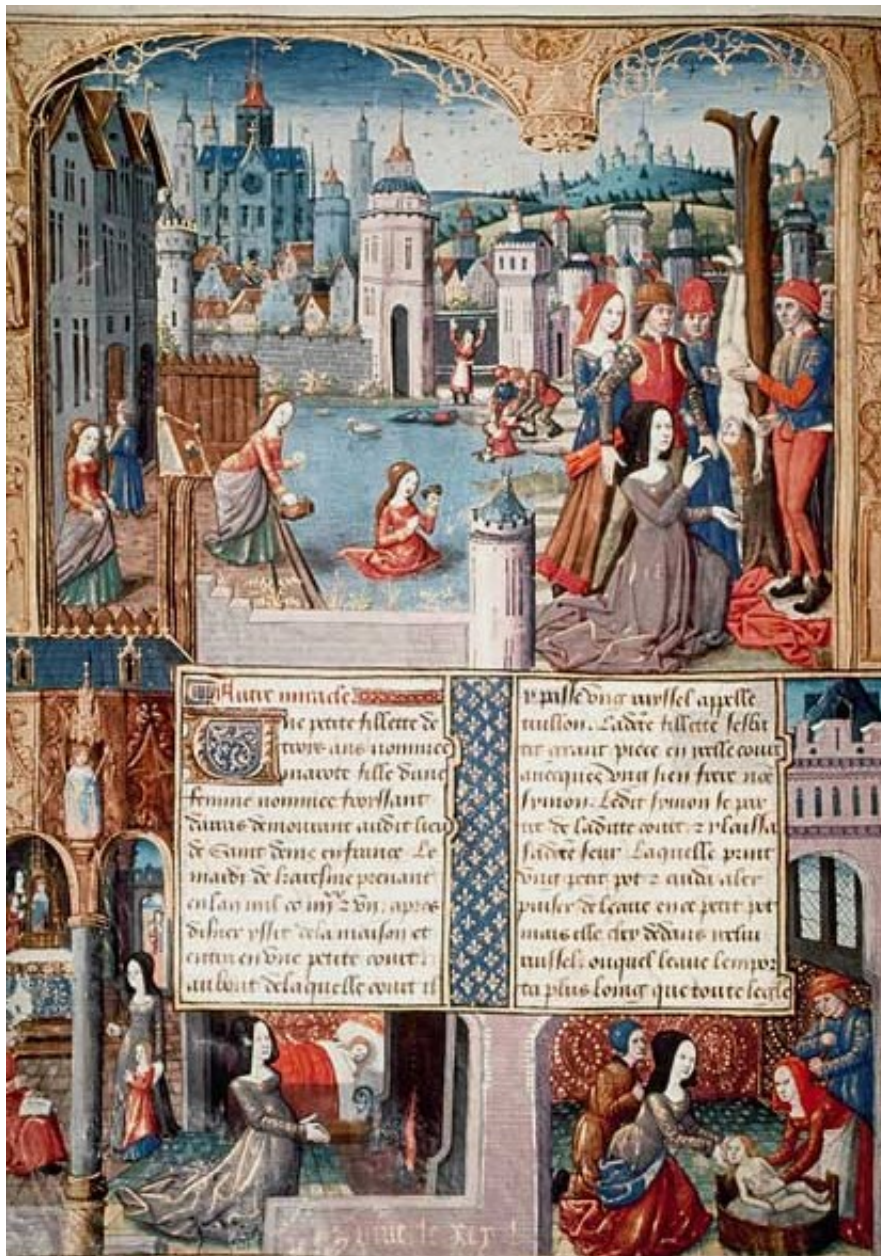 Autre miracle
Une petite fillette de
trois ans nommee
marote fille dune
femme nommee froissant
darras demourant audit lieu
de Saint denis en france. Le
mardi de karesme prenant
en lan mil cc iiii xx z Un. apres
disner yssit de la maison et
entra en une petite court :
au bout de laquelle court il
y passe ung ruyssel appelle
La dite fillette sesbatit
grant piece en icelle court
avecques ung sien frere nõe
symon. Ledit symon se par
tit de laditte court z y laissa
sadite seur. Laquelle print
ung petit pot z cuida aler
puiser de leaue en ce petit pot
mais elle cheÿ dedans icelui
ruissel. ouquel leaue lempor
ta plus loing que toute legle